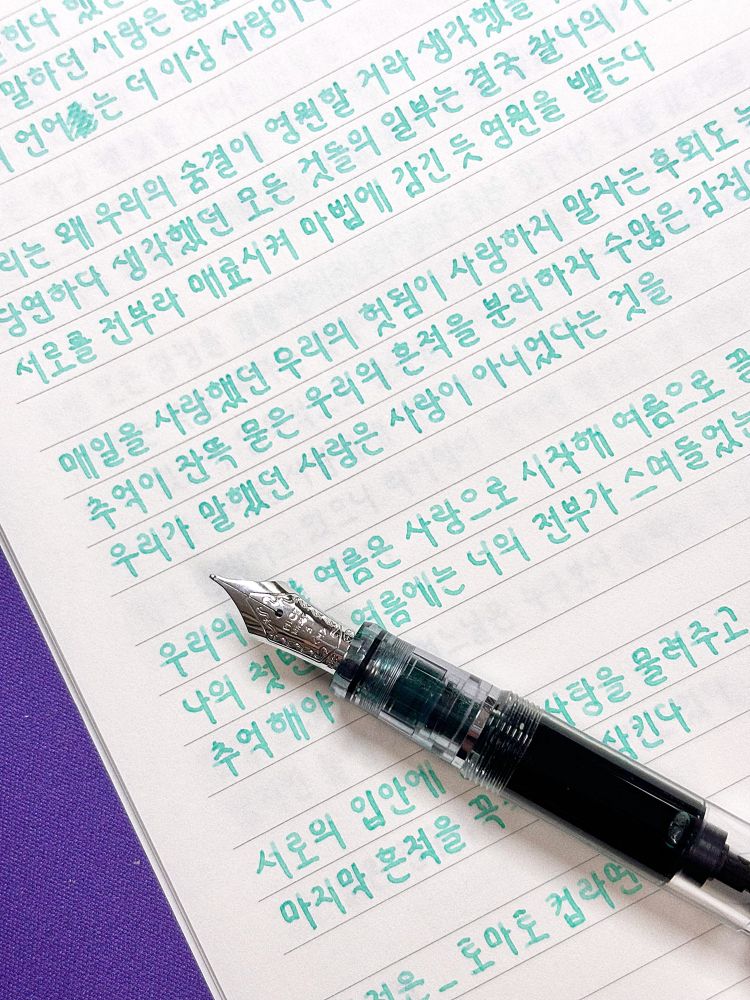 한다 했던
말하던 사랑은
언어는 더 이상 사랑이
리는 왜 우리의 숨결이 영원할 거라 생각했을
당연하다 생각했던 모든 것들의 일부는 결국 찰나의
서로를 전부라 매료시켜 마법에 감긴 듯 영원을 뱉는다
매일을 사랑했던 우리의 헛됨이 사랑하지 말자는 후회도
추억이 잔뜩 묻은 우리의 흔적을 분리하자 수많은 감정
우리가 말했던 사랑은 사랑이 아니었다는 것을
우리의 여름은 사랑으로 시작해 여름으로
나의 첫 여름에는 너의 전부가 스며들었
추억해야
서로의 입안에 사탕을 물려주고
마지막 흔적을 삼킨다
적은 _ 토마토 컵라면